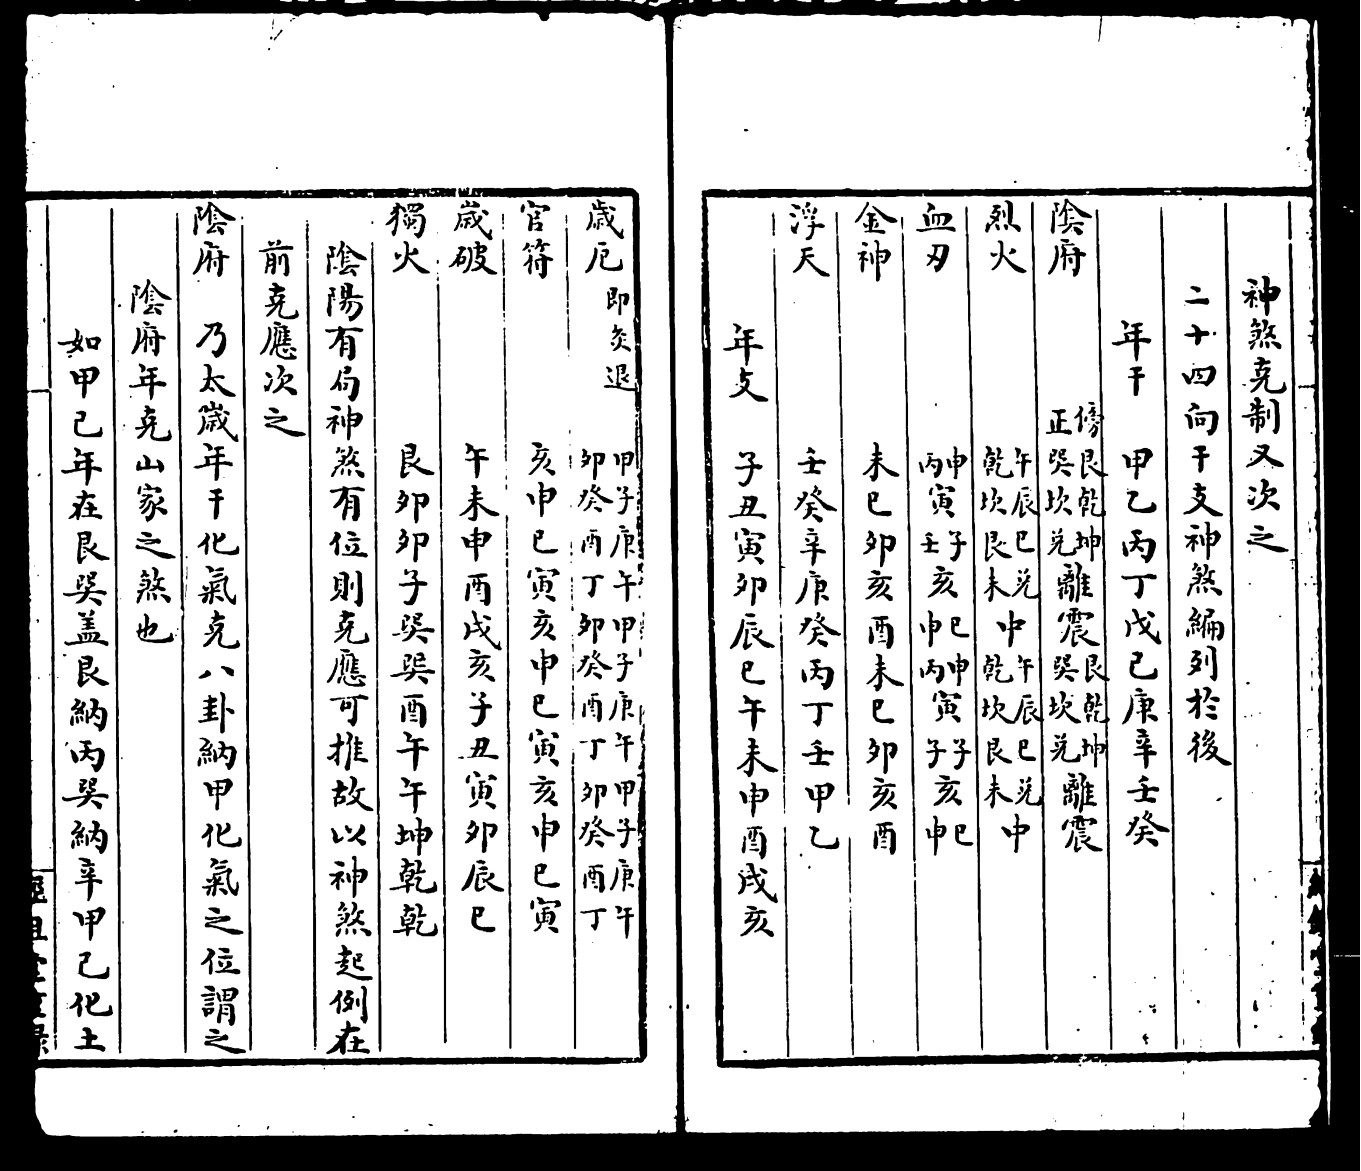 神煞克制又次之
二十四向干支神煞編列於後
年干 甲乙丙丁戊己庚辛壬癸
陰府 傍正艮巽乾坎坤兌離震艮巽乾坎坤兌離震
烈火 午乾辰坎巳艮兌未中午乾辰坎巳艮兌未中
血刃 申丙寅子壬亥巳申申丙寅子子亥巳申
金神 未巳卯亥酉未巳卯亥酉
浮天 壬癸辛庚癸丙丁壬甲乙
年支 子丑寅卯辰巳午未申酉戌亥
歲厄 即灸退 甲卯子癸庚酉午丁甲卯子癸庚酉午丁甲卯子癸庚酉午丁
官符 亥申巳寅亥申巳寅亥申巳寅
歲破 午未申酉戌亥子丑寅卯辰巳
獨火 艮卯卯子巽巽酉午午坤乾乾
陰陽有局神煞有位則克應可推故以神煞起例在
前克應次之
陰府 乃太歲年干化氣克八卦納甲化氣之位謂之
陰府年克山家之煞也
如甲己年在艮巽盖艮納丙巽納辛甲己化土